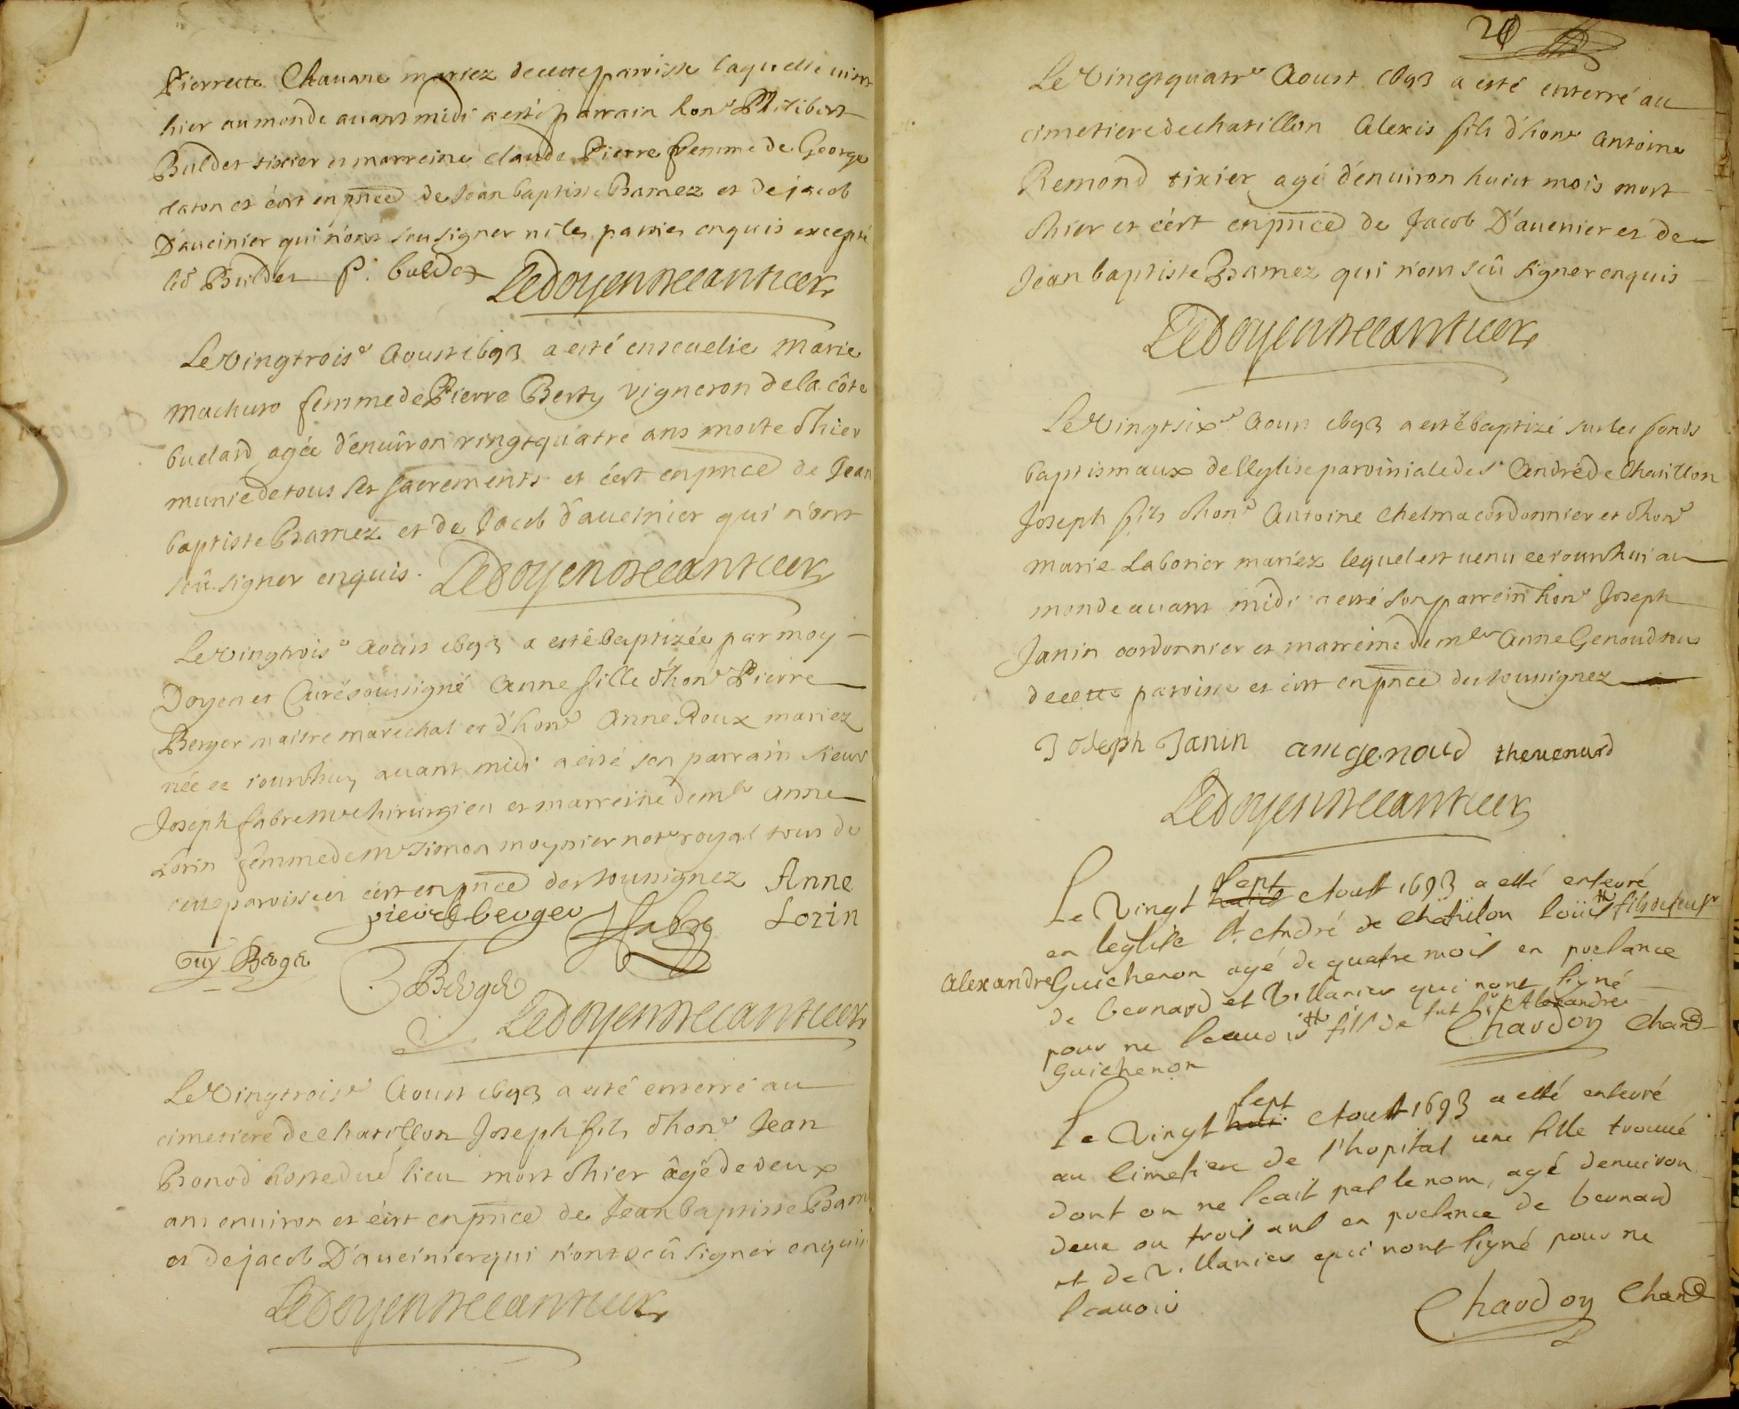 Pierrette Chavane mariez de cette paroisse laquelle vint
hier au monde avant midi a esté parrain hon.e Philibert
Buldet tixier et marreine claude Pierre femme de George
laton et c'est en pñce de Jean baptiste Bamez et de jacob
D'aveinier qui n'ont sceu signer ni les parties enquis excepté
led Buldet P. buldet Ledoyen Decanteur
Le Vingtrois.e Aoust 1693 a esté ensevelie Marie
Machuro femme de Pierre Berty vigneron de la côte
buelard agée d'environ vingtquatre ans morte d'hier
munie de tous ses sacrements et c'est en pñce de Jean
baptiste Bamez et de Jacob d'aveinier qui n'ont
sceû signer enquis.
Le Vingtrois.e Aoust 1693 a esté baptizée par moy
Doyen et Curé soussigné Anne fille d'hon.e Pierre
Berger maitre marechal et d'hon.e Anne Roux mariez
née ce jourdhuy avant midi a esté son parrain sieur
Joseph fabre m.e chirurgien et marreine dem.le Anne
Lorin femme de m.e simon moynier not.e royal tous de
cette paroisse et c'est en pñce des soussignez Anne
pierre berger Jfabre Lorin
Guy Berger
Berger
Le Vingtrois.e Aoust 1693 a esté enterré au
cimetiere de chatillon Joseph fils d'hon.e Jean
Bonod hoste dud lieu mort d'hier âgé de deux
ans environ et c'est en pñce de Jean baptiste Bam
et de jacob D'aveinier qui n'ont sceû signer enquis
20
Le Vingtquatr.e Aoust 1693 a esté enterré au
cimetiere de chatillon Alexis fils d'hon.e Antoine
Remond tixier agé d'environ huict mois mort
d'hier et c'est en pñce de Jacob D'avenier et de
Jean baptiste Bamez qui n'ont sceû signer enquis
Le Vingtsix.e Aoust 1693 a esté baptizé sur les fonds
baptismaux de l'Eglise parroiniale de s.t André de Chatillon
Joseph fils d'hon.e Antoine Chelma cordonnier et d'hon.e
Marie Laborier mariez lequel est venu ce jourdhui au
monde avant midi a esté son parrein hon.e Joseph
Janin cordonnier et marreine dem.le Anne Genoud tous
de cette paroisse et c'est en pñce des soussignez
Joseph Janin anne genoud thevenard
Le Vingt sept Aoust 1693 a esté enterré
en leglise S.t André de Chatillon Loüis fils de feu S.r
Alexandre Guichenon agé de quatre mois en presance
de bernard et Villanier qui n'ont signé
pour ne scavoir fils de fut S.r Alexandre
Guichenon Chardon Chan.e
Le Vingt sept Aoust 1693 a esté enterré
au Cimetiere de l'hopital une fille trouvé
dont on ne scait pas le nom, agé denviron
deux ou trois ans en presance de bernard
et de Villanier qui n'ont signé pour ne
scavoir Chardon Chan.e